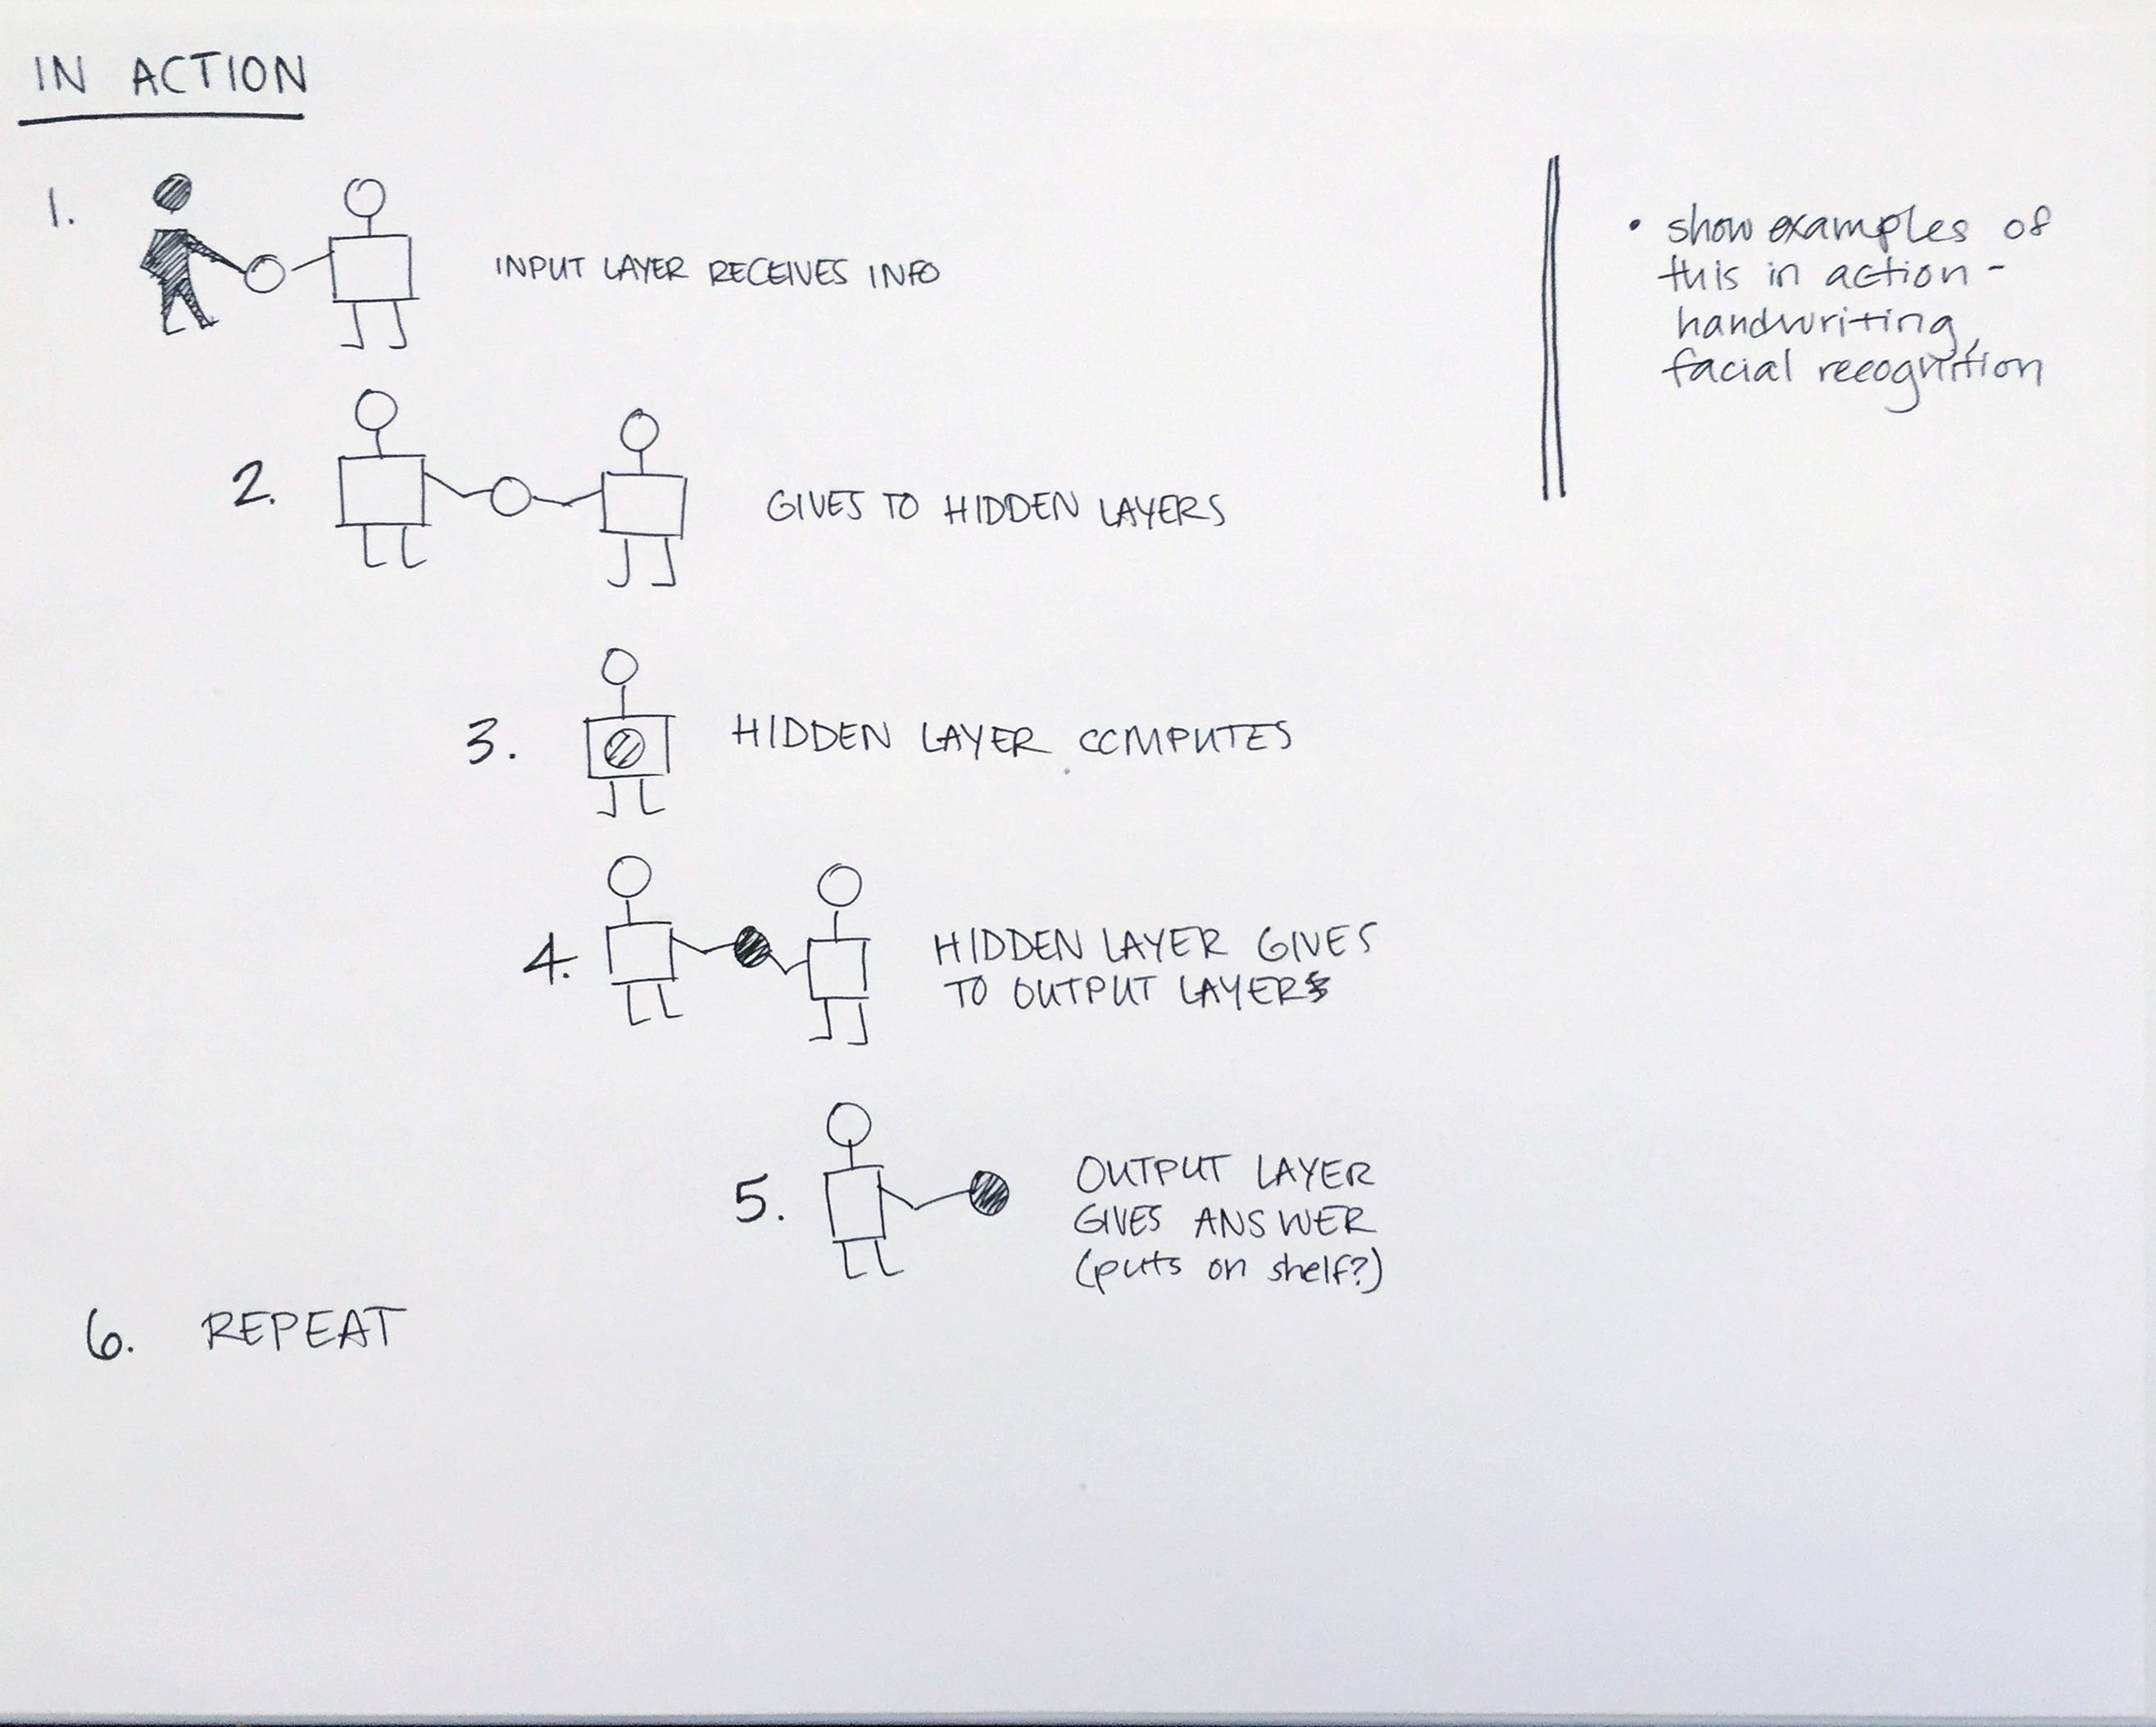 IN ACTION
1.
INPUT LAYER RECEIVES INFO
2.
GIVES TO HIDDEN LAYERS
3.
HIDDEN LAYER COMPUTES
4.
HIDDEN LAYER GIVES
TO OUTPUT LAYER
5.
OUTPUT LAYER
GIVES ANSWER
(puts on shelf?)
6. REPEAT
• show examples of
this in action -
handwriting,
facial recognition